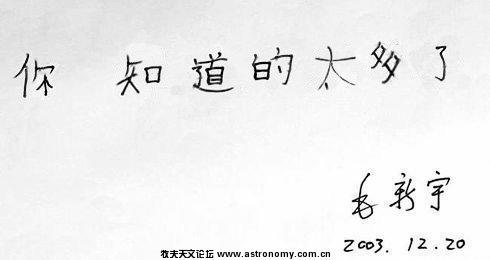 你知道的太多了
毛新宇
2003.12.20
牧夫天文论坛 www.astronomy.com.cn